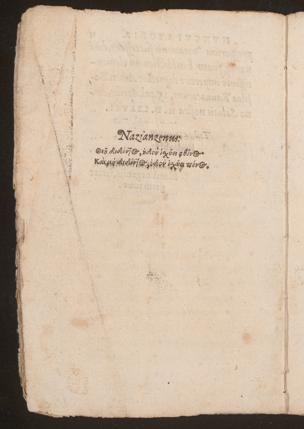 Nazianzenus.
Θεοῦ διδόντος, οὐδὲν ἰσχύει φθόνος
Καὶ μὴ διδόντος, οὐδὲν ἰσχύει πόνος.